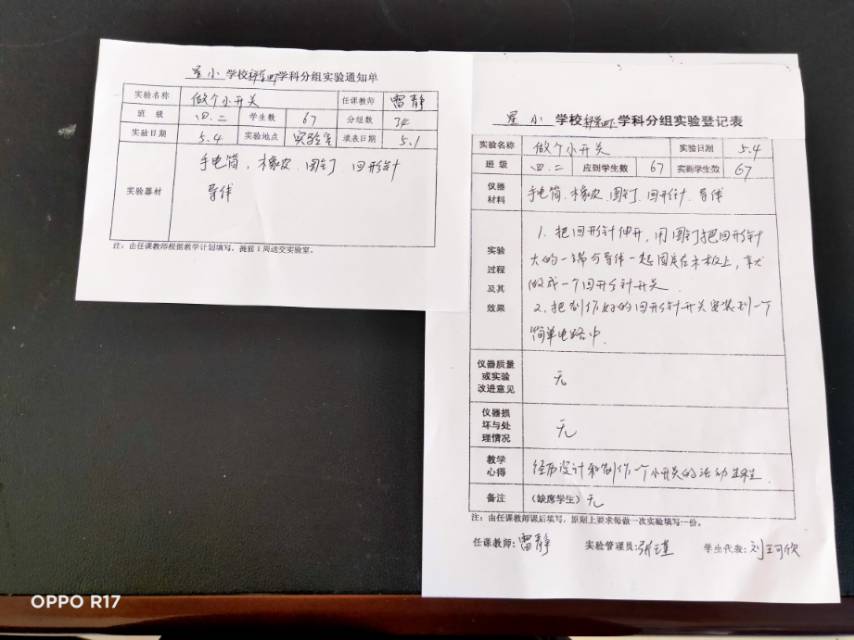 星小 学校科学四下学科分组实验通知单
实验名称 做个小开关 任课教师 雷静
班级 四.二 学生数 67 分组数 34
实验日期 5.4 实验地点 实验室 填表日期 5.1
实验器材 手电筒、橡皮、图钉 回形针
导线
注：由任课教师根据教学计划填写，提前1周送交实验室。
星小 学校科学四下学科分组实验登记表
实验名称 做个小开关 实验日期 5.4
班级 四.二 应到学生数 67 实到学生数 67
仪器材料 手电筒、橡皮、图钉、回形针、导线
实验过程及其效果
1、把回形针伸开，用图钉把回形针
大的一端与导线一起固定在木板上，就
做成一个回形针开关.
2、把制作好的回形针开关安装到一个
简单电路中.
仪器质量或实验改进意见 无
仪器损坏与处理情况 无
教学心得 经历设计和制作一个小开关的活动过程.
备注 （缺席学生）无
注：由任课教师课后填写，原则上要求每做一次实验填写一份。
任课教师：雷静 实验管理员：张瑾 学生代表：刘珂欣
OPPO R17